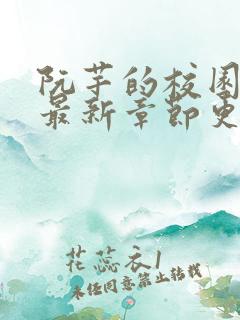 阮芊的校园
最新章节史
花蕊衣1
未经同意禁止转载